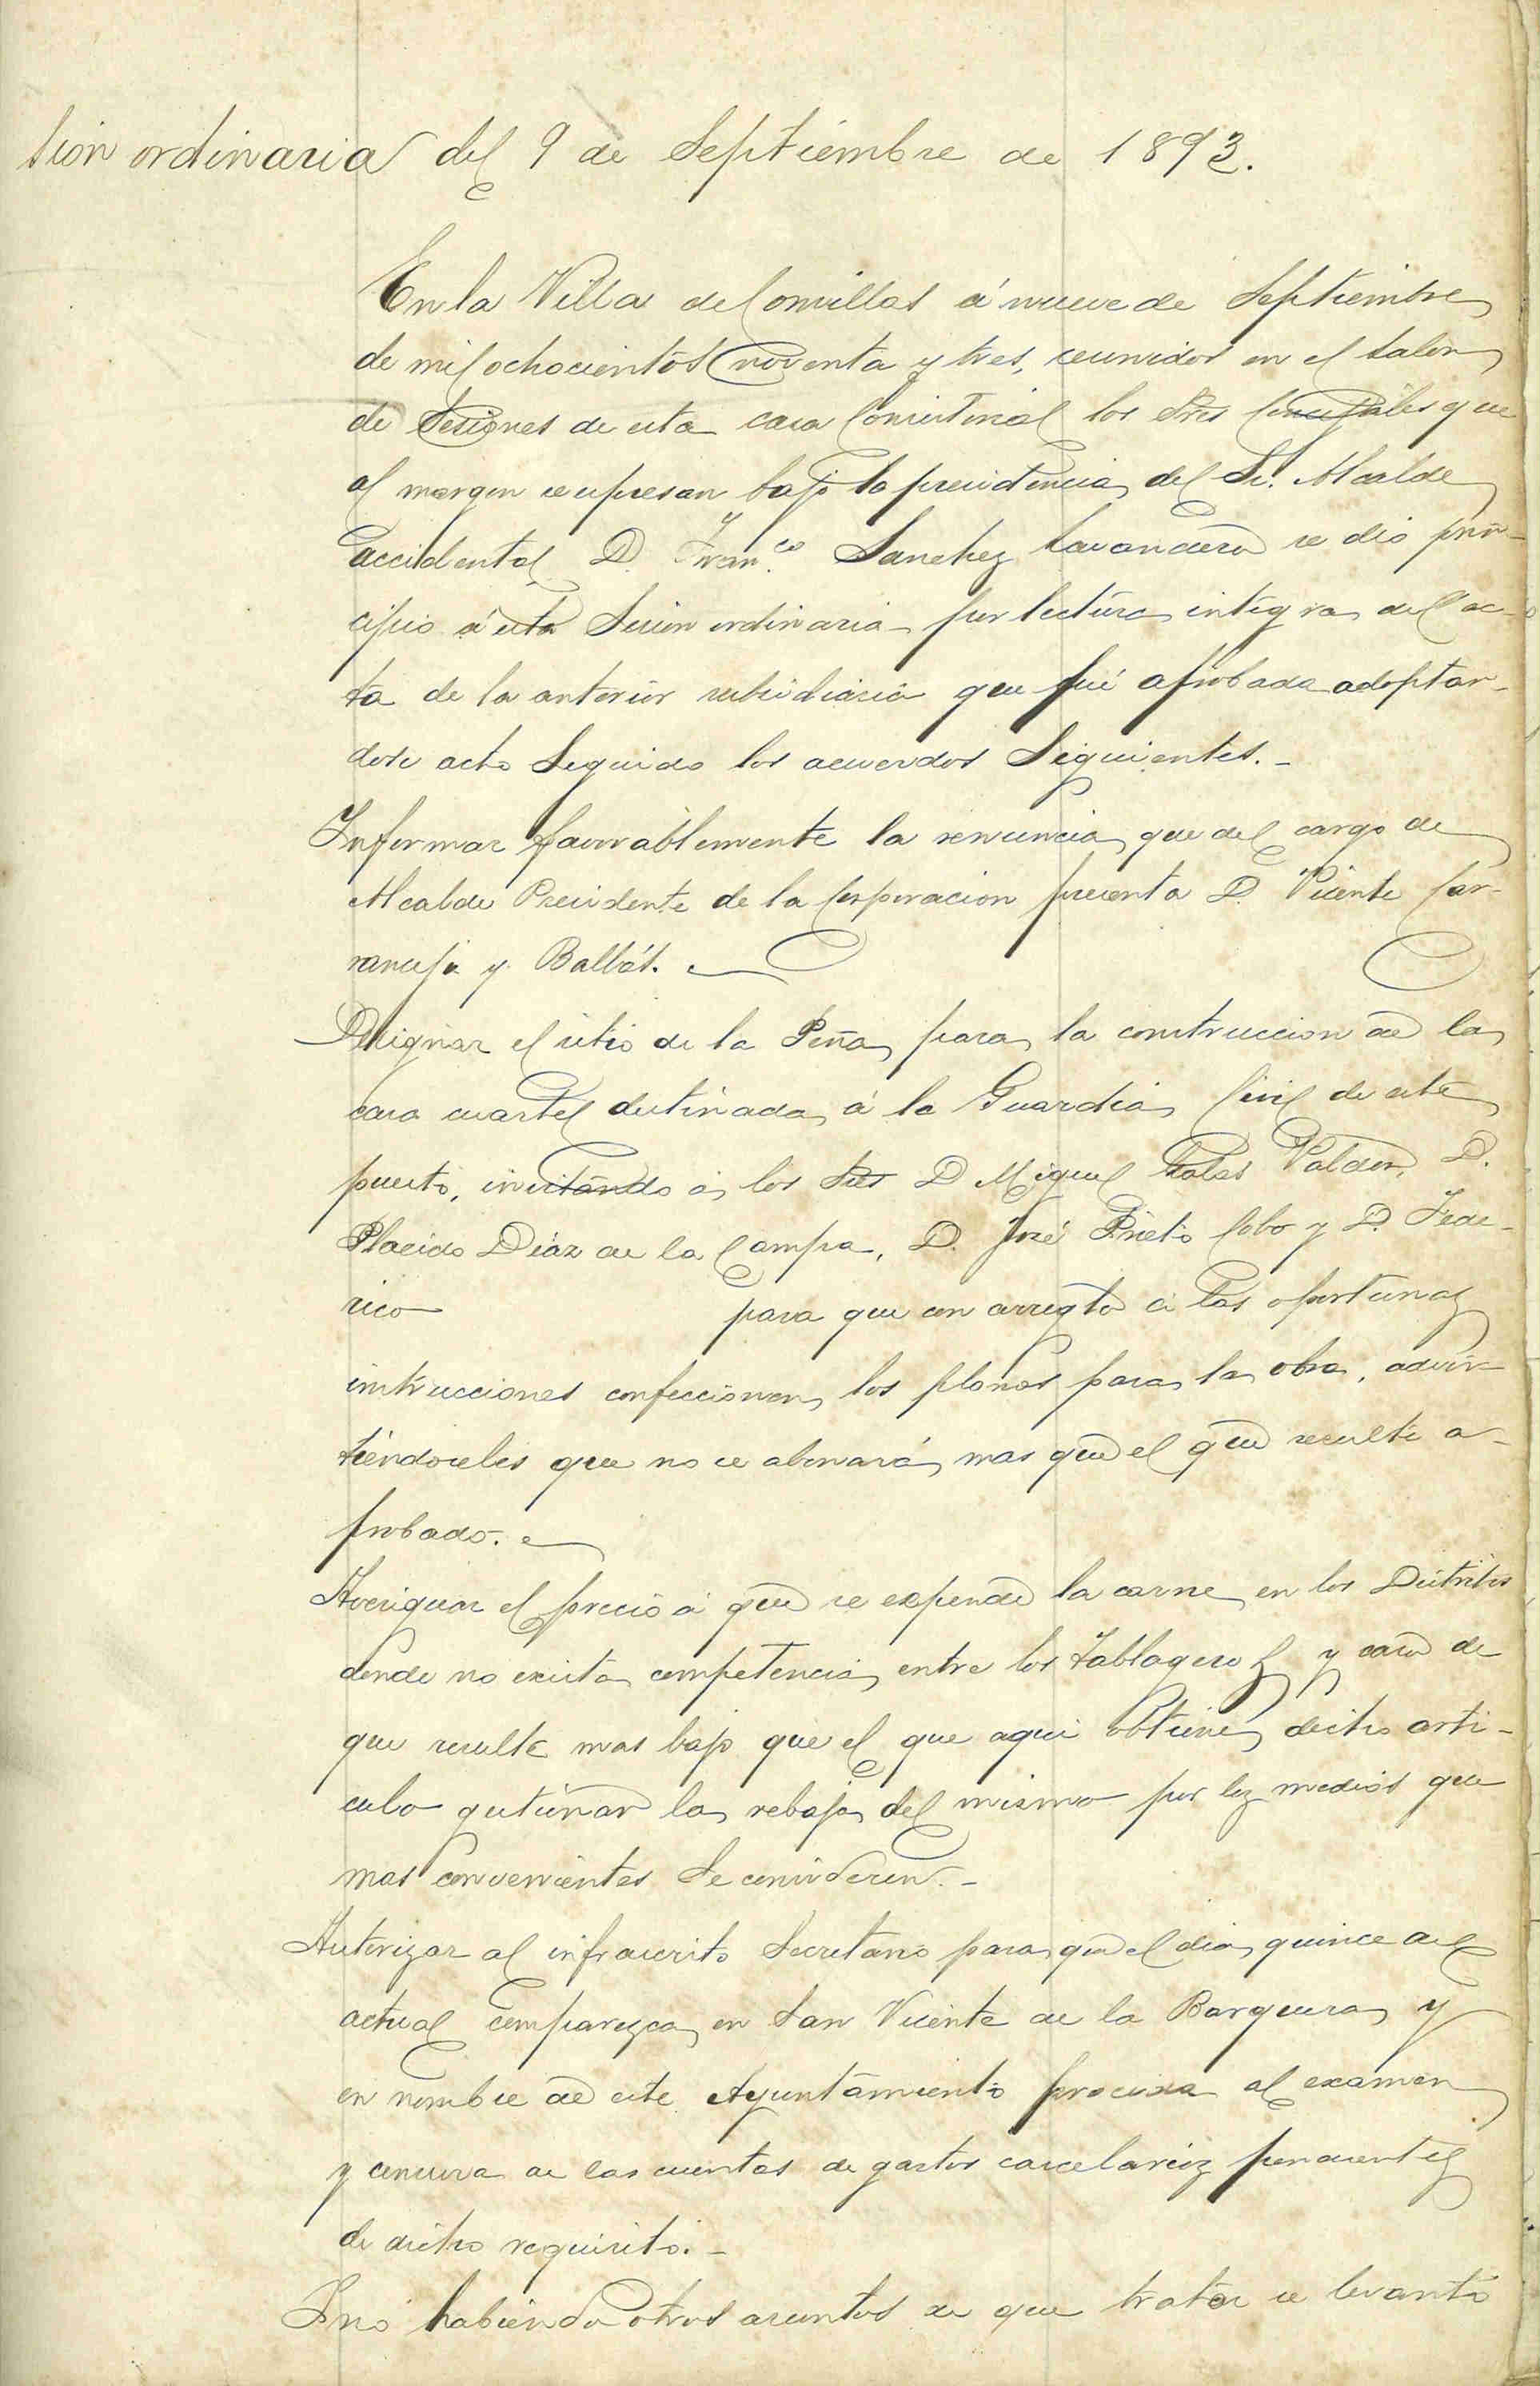 sión ordinaria del 9 de Septiembre de 1893.
En la Villa de Comillas á nueve de Septiembre
de mil ochocientos noventa y tres, reunidos en el salon
de Sesiones de esta casa Consistorial los Sres Concejales que
al margen se espresan bajo la presidencia del Sr. Alcalde
accidental D. Franco Sanchez Lavandera se dió prin-
cipio á esta Sesion ordinaria por lectura integra del ac-
ta de la anterior subsidiaria que fué aprobada adoptan-
dose acto Seguido los acuerdos Siguientes.-
Informar favorablemente la renuncia que del cargo de
Alcalde Presidente de la Corporacion presenta D. Vicente Car-
ranceja y Balbás.
Designar el sitio de la Peña para la construccion de la
casa cuartel destinada á la Guardia Civil de este
puesto, invitando á los Sres D Miguel Salas Valdor, D.
Placido Diaz de la Campa, D. José Prieto Cobo y D. Fede-
rico para que con arreglo á las oportunas
instrucciones confeccionen los planos para la obra, advir-
tiéndoseles que no se abonará mas que el que resulte a-
probado.
Averiguar el precio á que se expende la carne en los Distritos
donde no exista competencia entre los tablageros y caso de
que resulte mas bajo que el que aqui obtiene dicho arti-
culo gestionar la rebaja del mismo por los medios que
mas convenientes Se consideren.-
Autorizar al infrascrito Secretario para que el dia quince del
actual comparezca en San Vicente de la Barquera y
en nombre de este Ayuntamiento proceda al examen
y censura de las cuentas de gastos carcelarios pendientes
de dicho requisito.-
Y no habiendo otros asuntos de que tratar se levantó